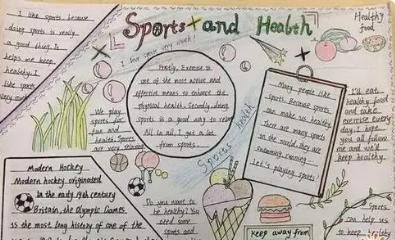 Sports and Health
I like sports because
doing sports is really
a good thing. It
helps me keep
healthy. I
like sports
very much!
I love sports very much!
Healthy
food
Firstly, Exercise is
one of the most active and
effective means to enhance the
physical health. Secondly, doing
sports is a good way to relax
All in all, I get a lot
from sports.
We play
sports for
fun and
health. Sports
are very relaxed
Many people like
sports. Because sports
can make us healthy
there are many sports
in the world. they are
swimming, running
Let's playing sports!
I'd eat
healthy food
and take
exercise every
day. I hope
you all follow
me and we'll
keep healthy.
Sports health
Modern Hockey
Modern hockey originated
in the mid 19th century
Britain, the Olympic Games
is the most long history of one of the
Do you want to
be healthy? You
need some
sports and
Keep away from
Sports
can help us
to keep healthy